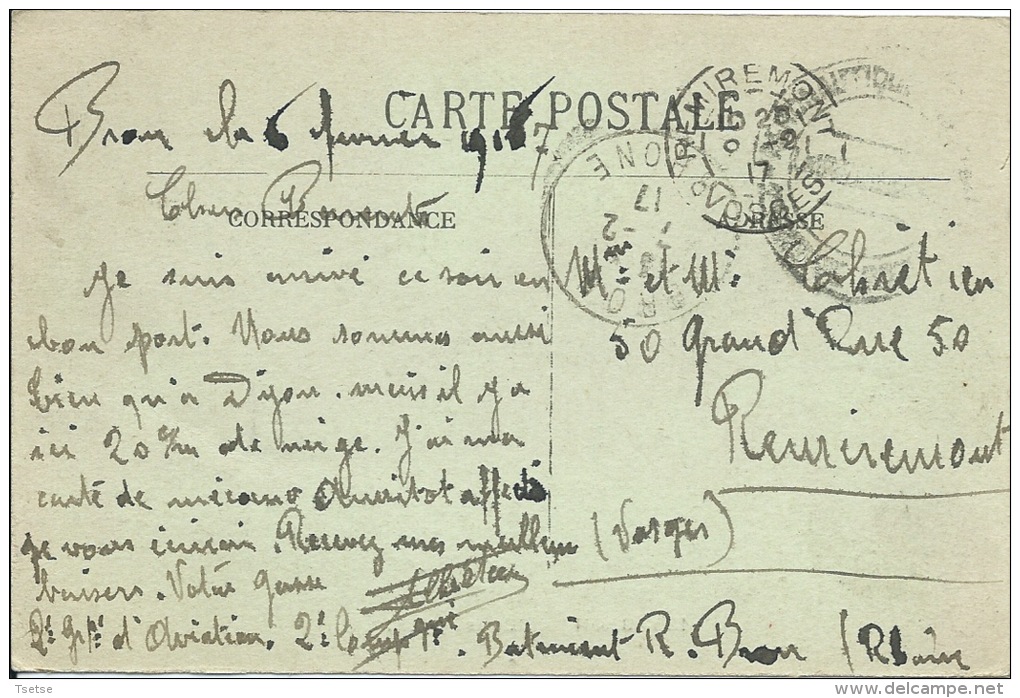 CARTE POSTALE
Bron le 6 février 1917
Chers Parents
CORRESPONDANCE
ADRESSE
Je suis arrivé ce soir en
bon port. Nous sommes aussi
bien qu'à Dijon. mais il y a
ici 20 c/m de neige. J'ai ma
carte de mécano Aussitot affecté
je vous écrirai. Recevez mes meilleurs
baisers. Votre gosse
2e Gpe d'Aviation. 2e Comp ie. Batiment R. Bron (Rhône
Mr et Me Chretien
50 Grand'Rue 50
Remiremont
(Vosges)
REMIREMONT
VOSGES
17
BRON
RHONE
17
Tsetse
www.delcampe.net